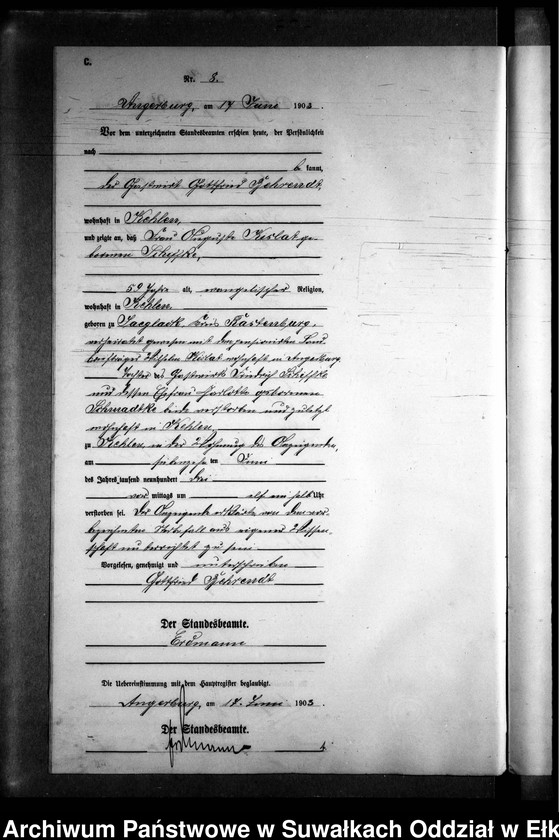 C.
Nr. 8.
Angerburg, am 17 Juni 1903
Vor dem unterzeichneten Standesbeamten erschien heute, der Persönlichkeit
nach
be kannt,
der Gastwirt Gottfried Behrendt
wohnhaft in Kehlen,
und zeigte an, daß Frau Auguste Kerlat ge-
borenen
59 Jahre alt, evangelischer Religion,
wohnhaft in Kehlen
geboren zu Jaeglack Kreis Rastenburg,
verheiratet gewesen mit dem pensionirten
Wilhelm wohnhaft in Angerburg
Tochter des Gastwirts Friedrich
und dessen Ehefrau Charlotte geborenen
Schwadtke beide verstorben und zuletzt
wohnhaft in Kehlen
zu Kehlen in der Wohnung des Anzeigenden,
am siebenzehnten Juni
des Jahres tausend neunhundert drei
vor mittags um elf ein halb Uhr
verstorben sei. Der Anzeigende erklärte von dem vor-
bezeichneten Sterbefall aus eigener Wissen-
schaft unterrichtet zu sein
Vorgelesen, genehmigt und unterschrieben
Gottfried Behrendt
Der Standesbeamte.
Erdmann
Die Uebereinstimmung mit dem Hauptregister beglaubigt.
Angerburg, am 18. Juni 1903.
Der Standesbeamte.
Erdmann
Archiwum Państwowe w Suwałkach Oddział w Ełk